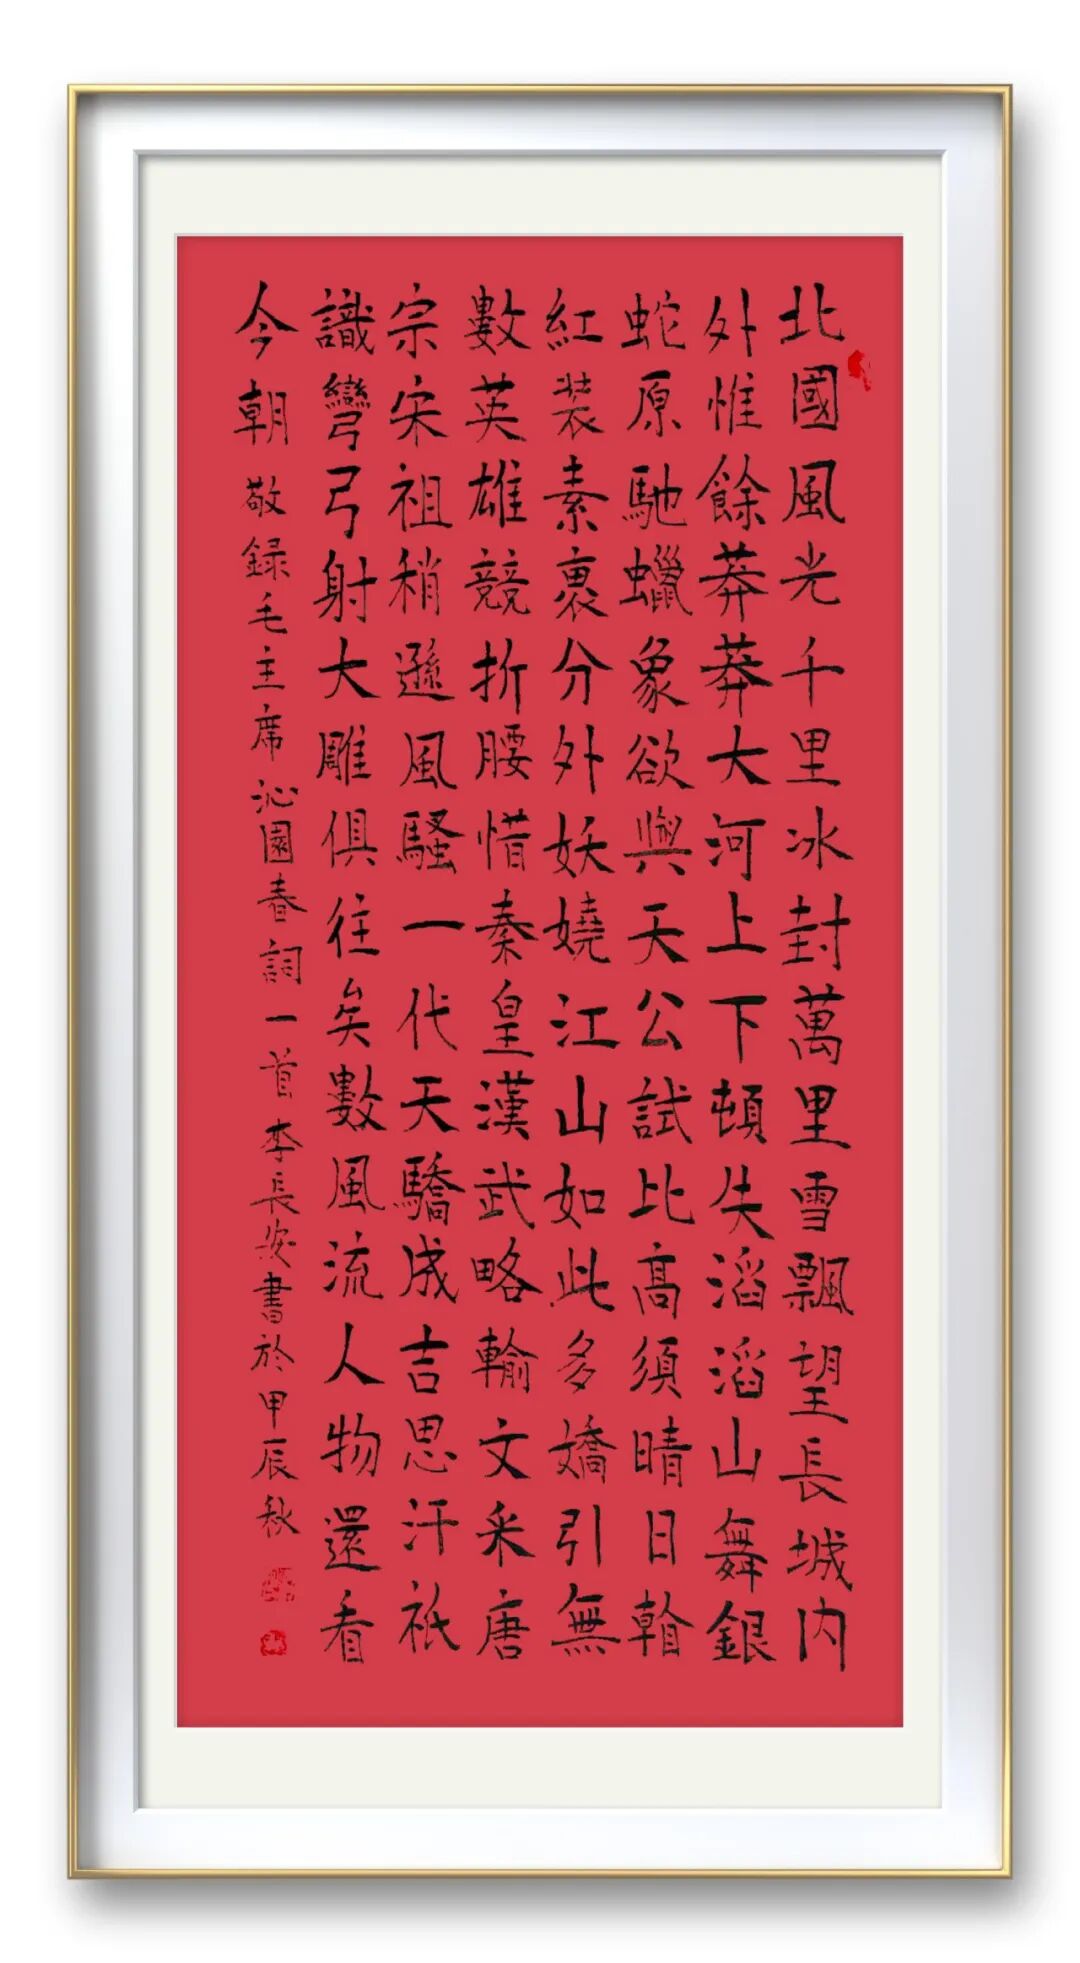 北國風光千里冰封萬里雪飄望長城內
外惟餘莽莽大河上下頓失滔滔山舞銀
蛇原馳蠟象欲與天公試比高須晴日
紅裝素裹分外妖嬈江山如此多嬌引無
數英雄競折腰惜秦皇漢武略輸文采唐
宗宋祖稍遜風騷一代天驕成吉思汗祇
識彎弓射大雕俱往矣數風流人物還看
今朝 敬録毛主席沁園春詞一首李長安書於甲辰秋